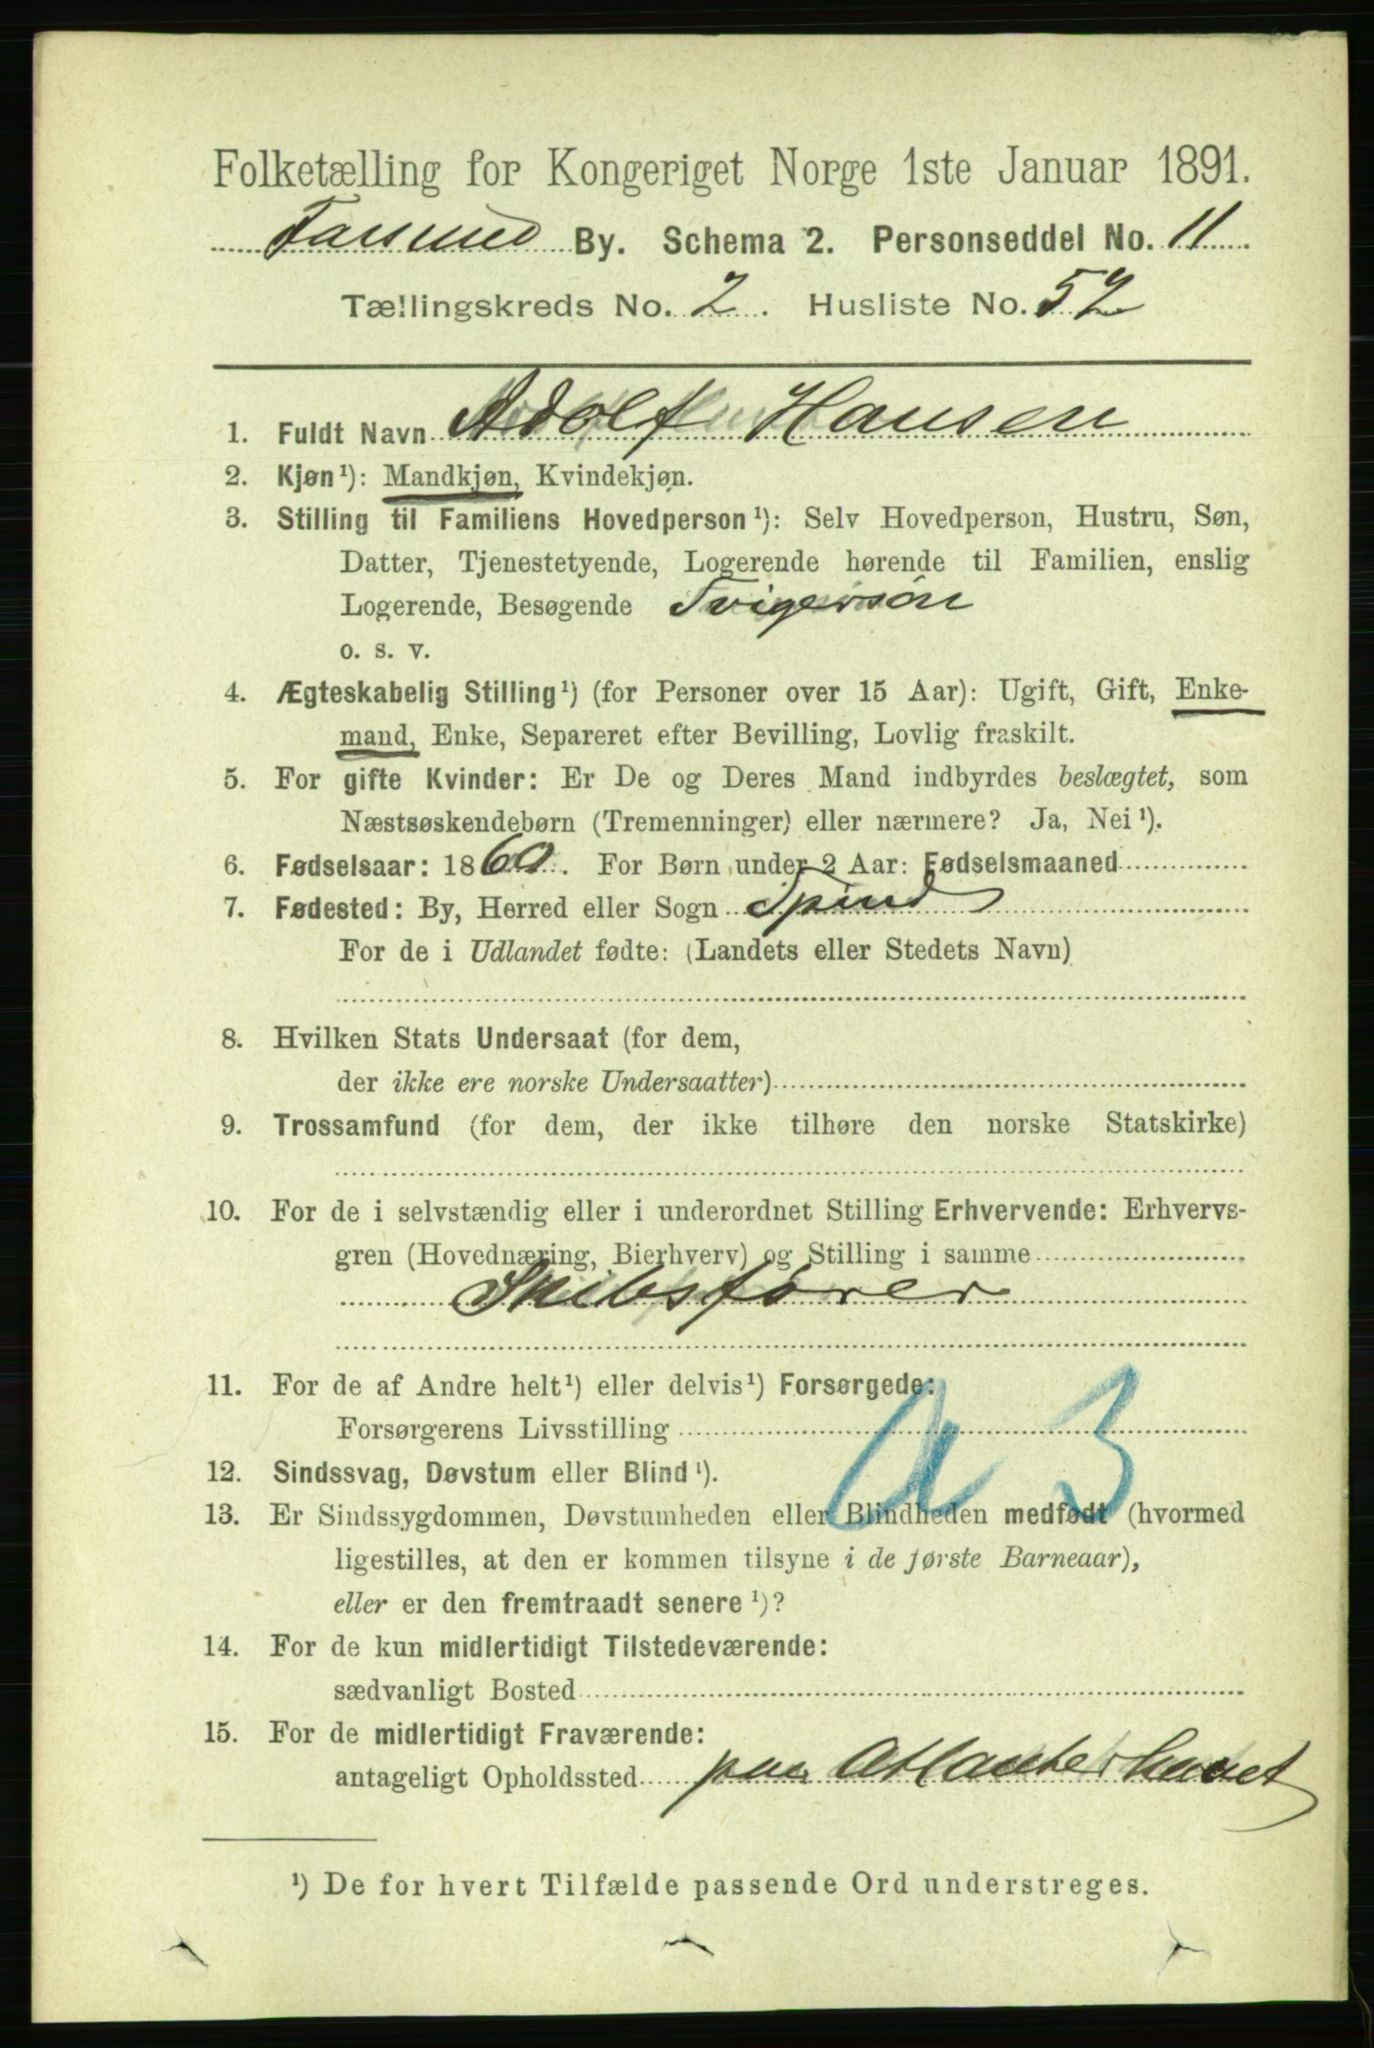 Folketælling for Kongeriget Norge 1ste Januar 1891.
Farsund By. Schema 2. Personseddel No. 11
Tællingskreds No. 2. Husliste No. 52
1. Fuldt Navn Adolf Hansen
2. Kjøn¹): Mandkjøn, Kvindekjøn.
3. Stilling til Familiens Hovedperson¹): Selv Hovedperson, Hustru, Søn,
Datter, Tjenestetyende, Logerende hørende til Familien, enslig
Logerende, Besøgende Svigersön
o. s. v.
4. Ægteskabelig Stilling¹) (for Personer over 15 Aar): Ugift, Gift, Enke-
mand, Enke, Separeret efter Bevilling, Lovlig fraskilt.
5. For gifte Kvinder: Er De og Deres Mand indbyrdes beslægtet, som
Næstsøskendebørn (Tremenninger) eller nærmere? Ja, Nei¹).
6. Fødselsaar: 1860. For Børn under 2 Aar: Fødselsmaaned
7. Fødested: By, Herred eller Sogn Spind
For de i Udlandet fødte: (Landets eller Stedets Navn)
8. Hvilken Stats Undersaat (for dem,
der ikke ere norske Undersaatter)
9. Trossamfund (for dem, der ikke tilhøre den norske Statskirke)
10. For de i selvstændig eller i underordnet Stilling Erhvervende: Erhvervs-
gren (Hovednæring, Bierhverv) og Stilling i samme
Skibsförer
11. For de af Andre helt¹) eller delvis¹) Forsørgede:
Forsørgerens Livsstilling
a 3
12. Sindssvag, Døvstum eller Blind¹).
13. Er Sindssygdommen, Døvstumheden eller Blindheden medfødt (hvormed
ligestilles, at den er kommen tilsyne i de første Barneaar),
eller er den fremtraadt senere¹)?
14. For de kun midlertidigt Tilstedeværende:
sædvanligt Bosted
15. For de midlertidigt Fraværende:
antageligt Opholdssted paa Atlanterhavet
¹) De for hvert Tilfælde passende Ord understreges.